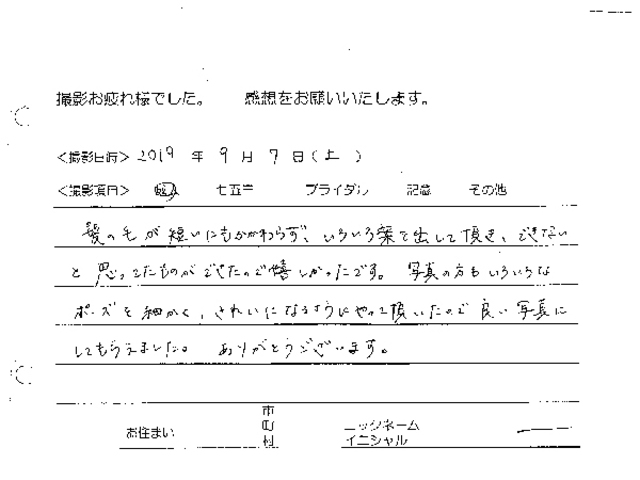 撮影お疲れ様でした。 感想をお願いいたします。
<撮影日時> 2019 年 9 月 7 日(土)
<撮影項目> 成人 七五三 ブライダル 記念 その他
髪の毛が短いにもかかわらず、いろいろ案を出して頂き、できない
と思ってたものができたので嬉しかったです。 写真の方もいろいろな
ポーズを細かく、きれいになるようにやって頂いたので良い写真に
してもらえました。 ありがとうございます。
お住まい 市 町 村 ニックネーム イニシャル